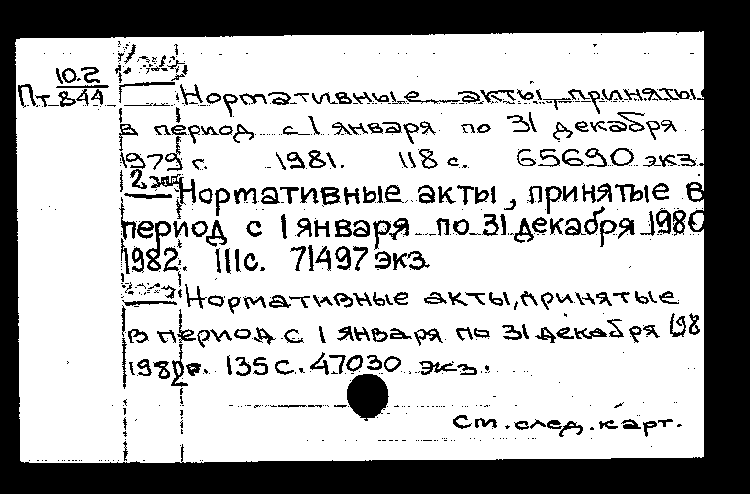 10.2
Пт 844
2 экз.
Нормативные акты, принятые
в период с 1 января по 31 декабря
1979 г. 1981. 118 с. 65690 экз.
2 экз.
Нормативные акты, принятые в
период с 1 января по 31 декабря 1980
1982. 111с. 71497 экз.
Нормативные акты, принятые
в период с 1 января по 31 декабря 198
135 с. 47030 экз.
См. след. карт.